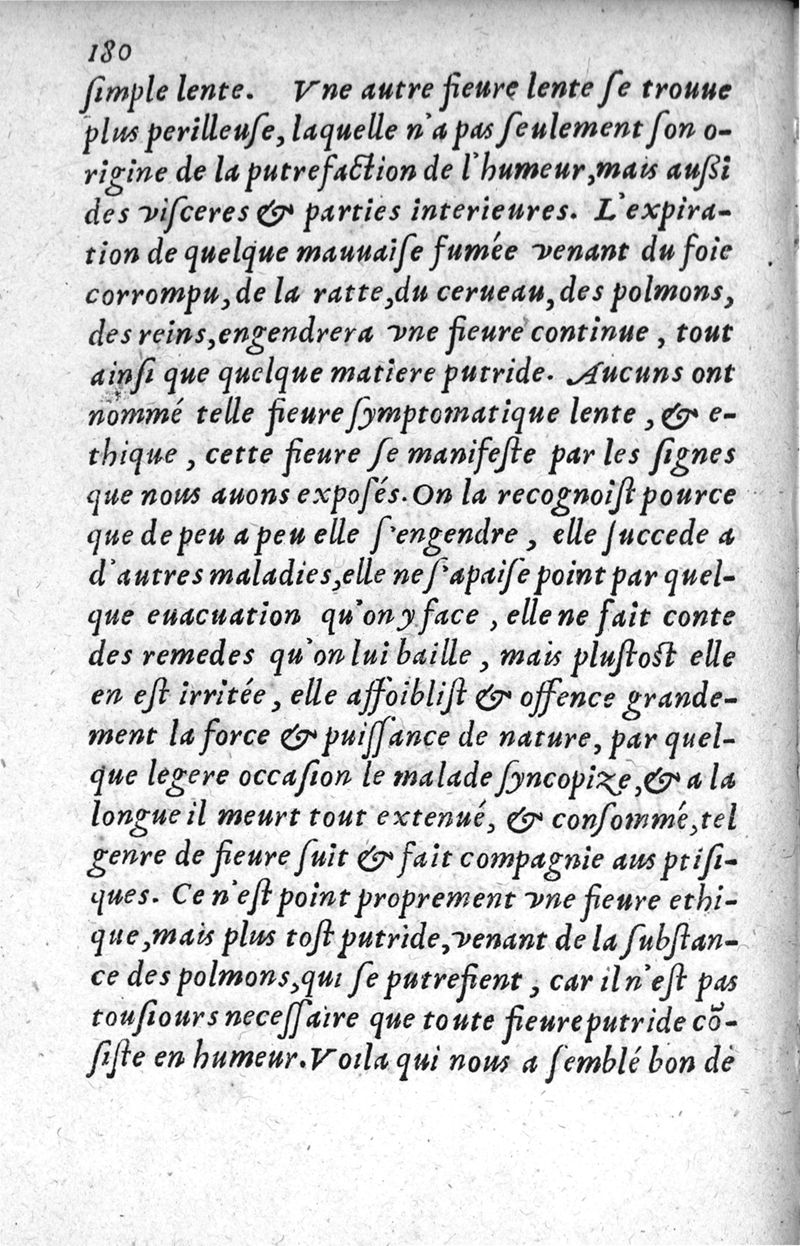 180
ſimple lente. Vne autre fieure lente ſe trouue
plus perilleuſe, laquelle n'a pas ſeulement ſon o-
rigine de la putrefaction de l'humeur, mais außi
des viſceres & parties interieures. L'expira-
tion de quelque mauuaiſe fumée venant du foie
corrompu, de la ratte, du cerueau, des polmons,
des reins, engendrera vne fieure continue, tout
ainſi que quelque matiere putride. Aucuns ont
nommé telle fieure ſymptomatique lente, & e-
thique, cette fieure ſe manifeſte par les ſignes
que nous auons expoſés. On la recognoiſt pource
que de peu a peu elle ſ'engendre, elle ſuccede a
d'autres maladies, elle ne ſ'apaiſe point par quel-
que euacuation qu'on y face, elle ne fait conte
des remedes qu'on lui baille, mais pluſtoſt elle
en eſt irritée, elle affoibliſt & offence grande-
ment la force & puiſſance de nature, par quel-
que legere occaſion le malade ſyncopize, & a la
longue il meurt tout extenué, & conſommé, tel
genre de fieure ſuit & fait compagnie aus ptiſi-
ques. Ce n'eſt point proprement vne fieure ethi-
que, mais plus toſt putride, venant de la ſubſtan-
ce des polmons, qui ſe putrefient, car il n'eſt pas
touſiours neceſſaire que toute fieure putride cõ-
ſiſte en humeur. Voila qui nous a ſemblé bon de